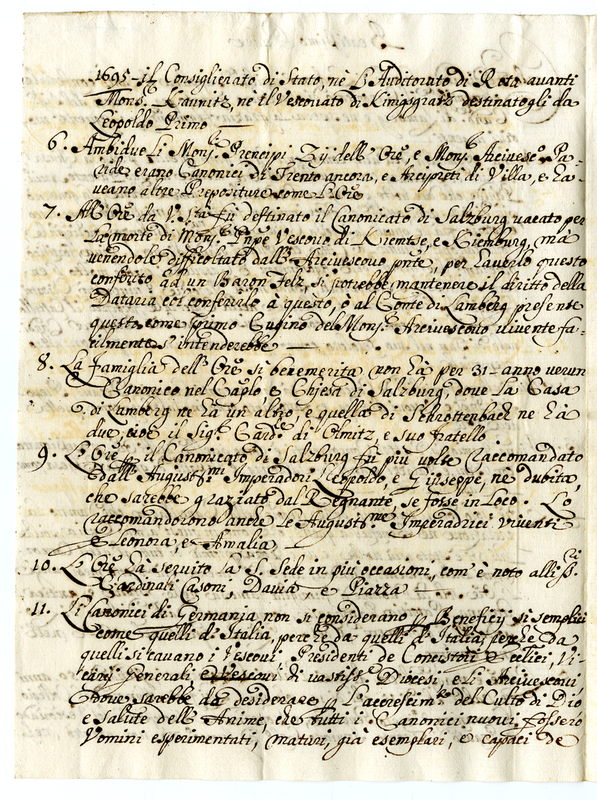 1695 - il Consiglierato di Stato, nè l'Auditorato di Rota avanti
Mons.r Kaunitz, nè il Vescovato di Kinigsgratz destinatogli da
Leopoldo Primo —
6. Ambidue li Mons.ri Prencipi Zij dell' Ore, e Mons.r Arcivesc.o Pa=
erano Canonici di Trento ancora, e Arcipreti di Villa, e ha=
veano altre Prepositure come l'Ore
7. All' Ore da V. S.tà fù destinato il Canonicato di Salzburg vacato per
la morte di Mons.r Pnpe Vescovo di Kiemsee, e Kiemburg, mà
venendole difficoltato dall' Arcivescovo pnte, per haverlo questo
conferito ad un Baron Felz, si potrebbe mantenere il diritto della
Dataria col conferirlo à questo, ò al Conte di Lamberg presente
questo come Cugino del Mons.r Arcivescovo vivente fa=
cilmente s' intenderebbe —
8. La famiglia dell' Ore si benemerita non hà per 31 - anno verun
Canonico nel Caplo, e Chiesa di Salzburg, dove la Casa
di Lamberg ne hà un altro, e quella di Schrottenbach ne hà
due, cioè il Sig.r Card. di Olmitz, e suo fratello.
9. L' Ore il Canonicato di Salzburg fù più volte raccomandato
dall' August.mi Imperadori Leopoldo, e Giuseppe, nè dubita,
che sarebbe graziato dal Regnante, se fosse in loco. Lo
raccomandorono anche le August.me Imperadrici viventi
Eleonora, e Amalia —
10. L' Ore hà servito la S. Sede in più occasioni, com' è noto alli SS.ri
Cardinali Casoni, Davia, e Piazza —
11. Li Canonici di Germania non si considerano Beneficij si semplici
come quelli di Italia, perche da quelli di Italia, perche da
quelli si cavano i Vescovi Presidenti de Concistori Ecclici, Vi=
carij Generali, di vastiss.e Diocesi, e li Arcivescovi
dove sarebbe da desiderare p l'accrescim.to del Culto di Dio
e salute dell' Anime, che tutti i Canonici nuovi fossero
Uomini esperimentati, maturi, già esemplari, e capaci de